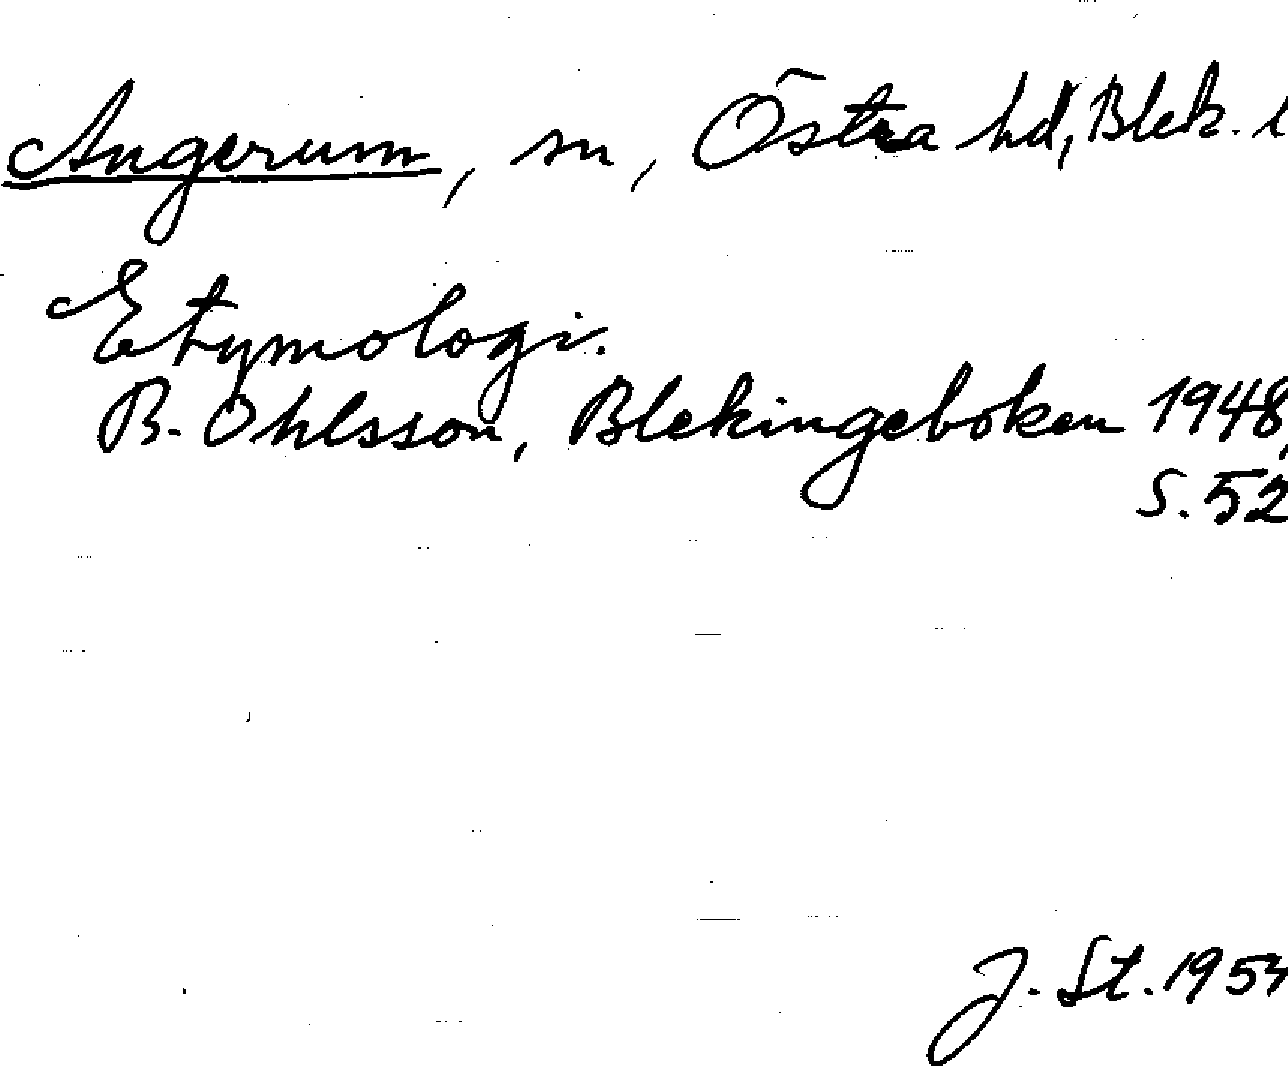 Angerum, sn, Östra hd, Blek. l
Etymologi.
B. Ohlsson, Blekingeboken 1948,
s. 52
J. St. 1954